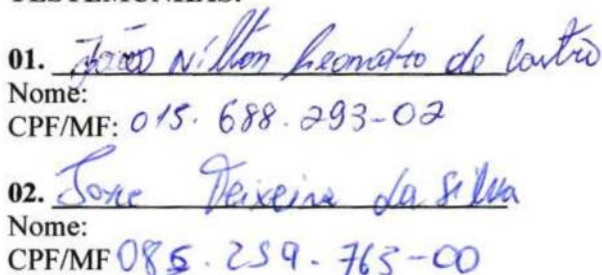 TESTEMUNHAS:
01. João Nilton Leonardo de Castro
Nome:
CPF/MF: 015.688.293-02
02. Jose Teixeira da Silva
Nome:
CPF/MF 085.259.763-00